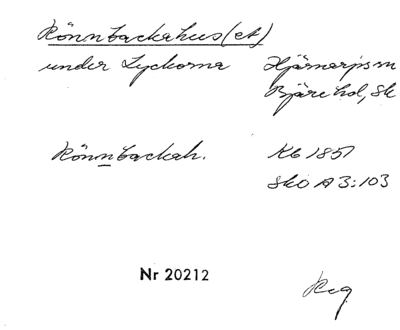 Rönnbackahus(et)
under Lyckorna Hjärnarps sn
Bjäre hd, Sk
Rönnbackah. Kb 1851
Sko A3:103
Nr 20212
Reg